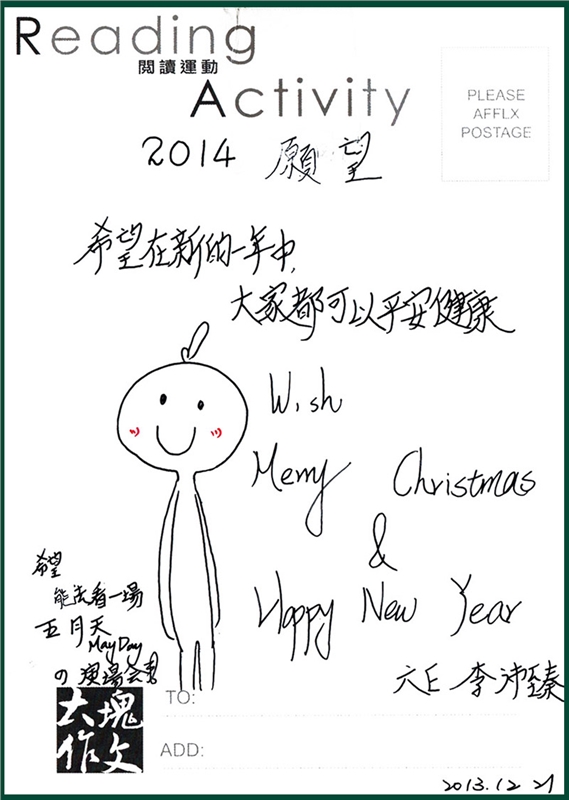 Reading
閱讀運動
Activity
PLEASE
AFFLX
POSTAGE
2014 願望
希望在新的一年中,
大家都可以平安健康
Wish
Merry Christmas
&
Happy New Year
希望
能去看一場
五月天
MayDay
の演場会
六E 李沛臻
大塊
作文
TO:
ADD:
2013.12.21